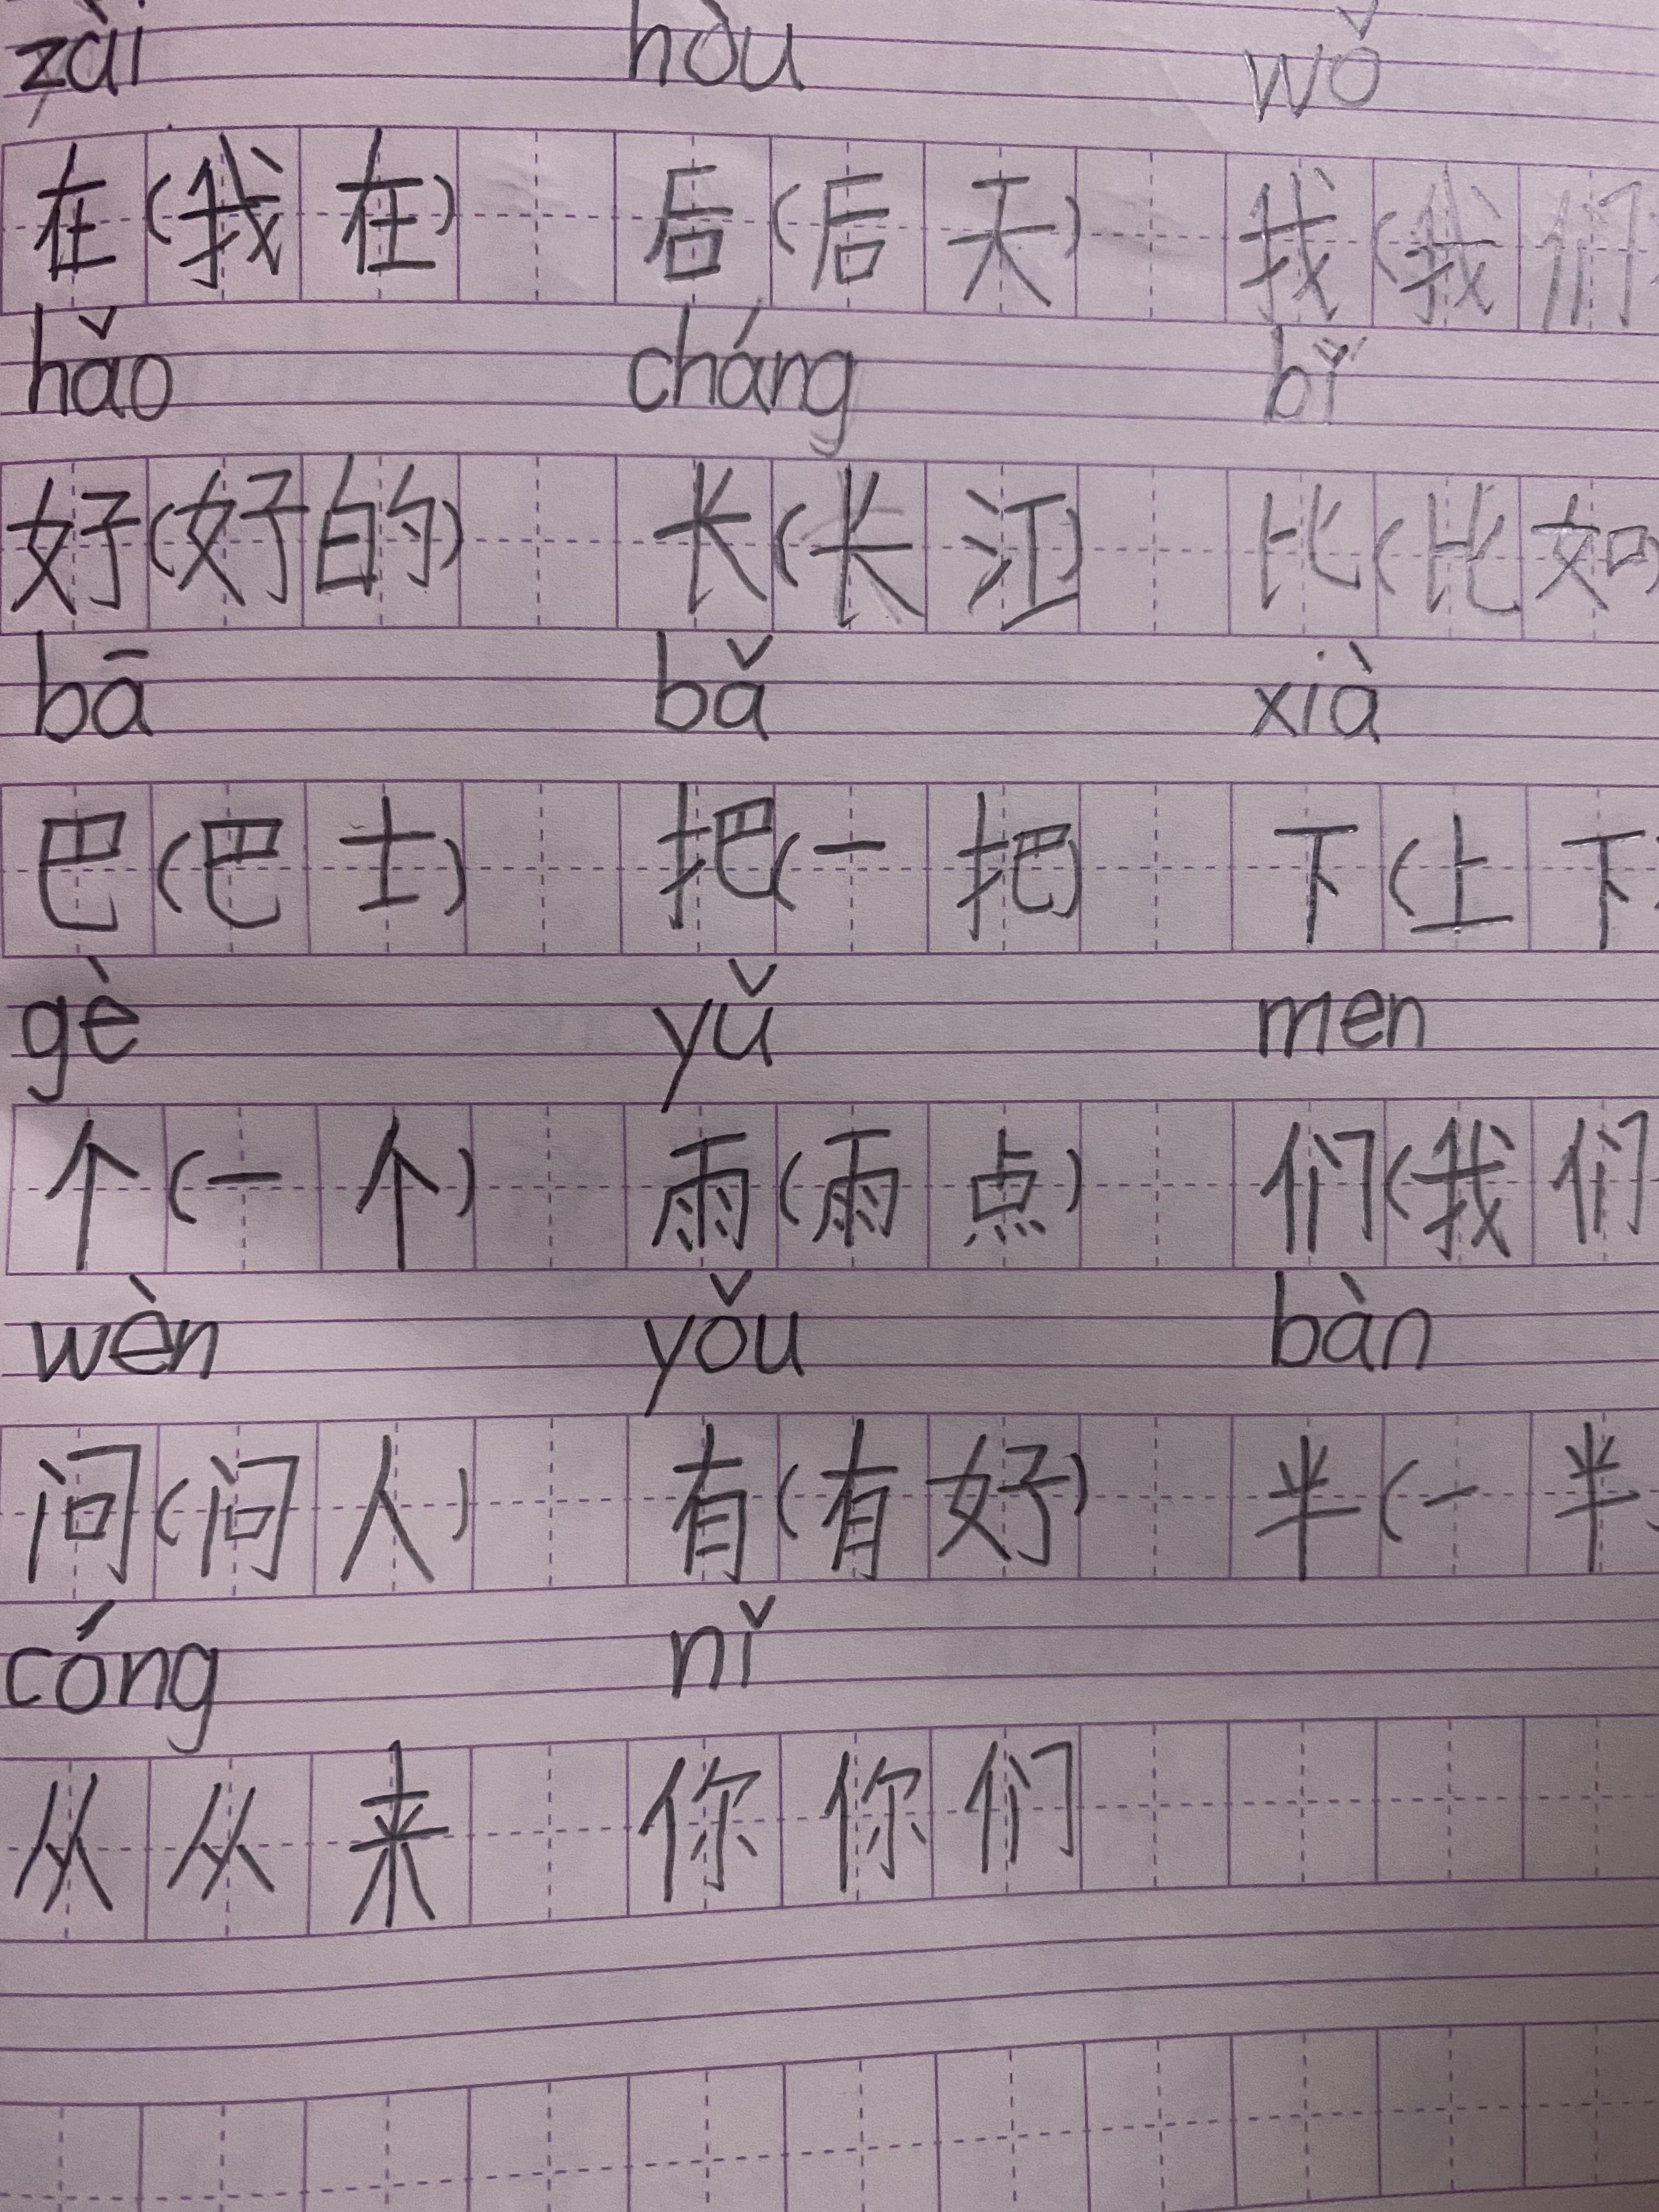 zài hòu wǒ
在(我在) 后(后天) 我(我们
hǎo cháng bǐ
好(好的) 长(长江) 比(比如)
bā bǎ xià
巴(巴士) 把(一把) 下(上下
gè yǔ men
个(一个) 雨(雨点) 们(我们
wèn yǒu bàn
问(问人) 有(有好) 半(一半
cóng nǐ
从从来 你你们